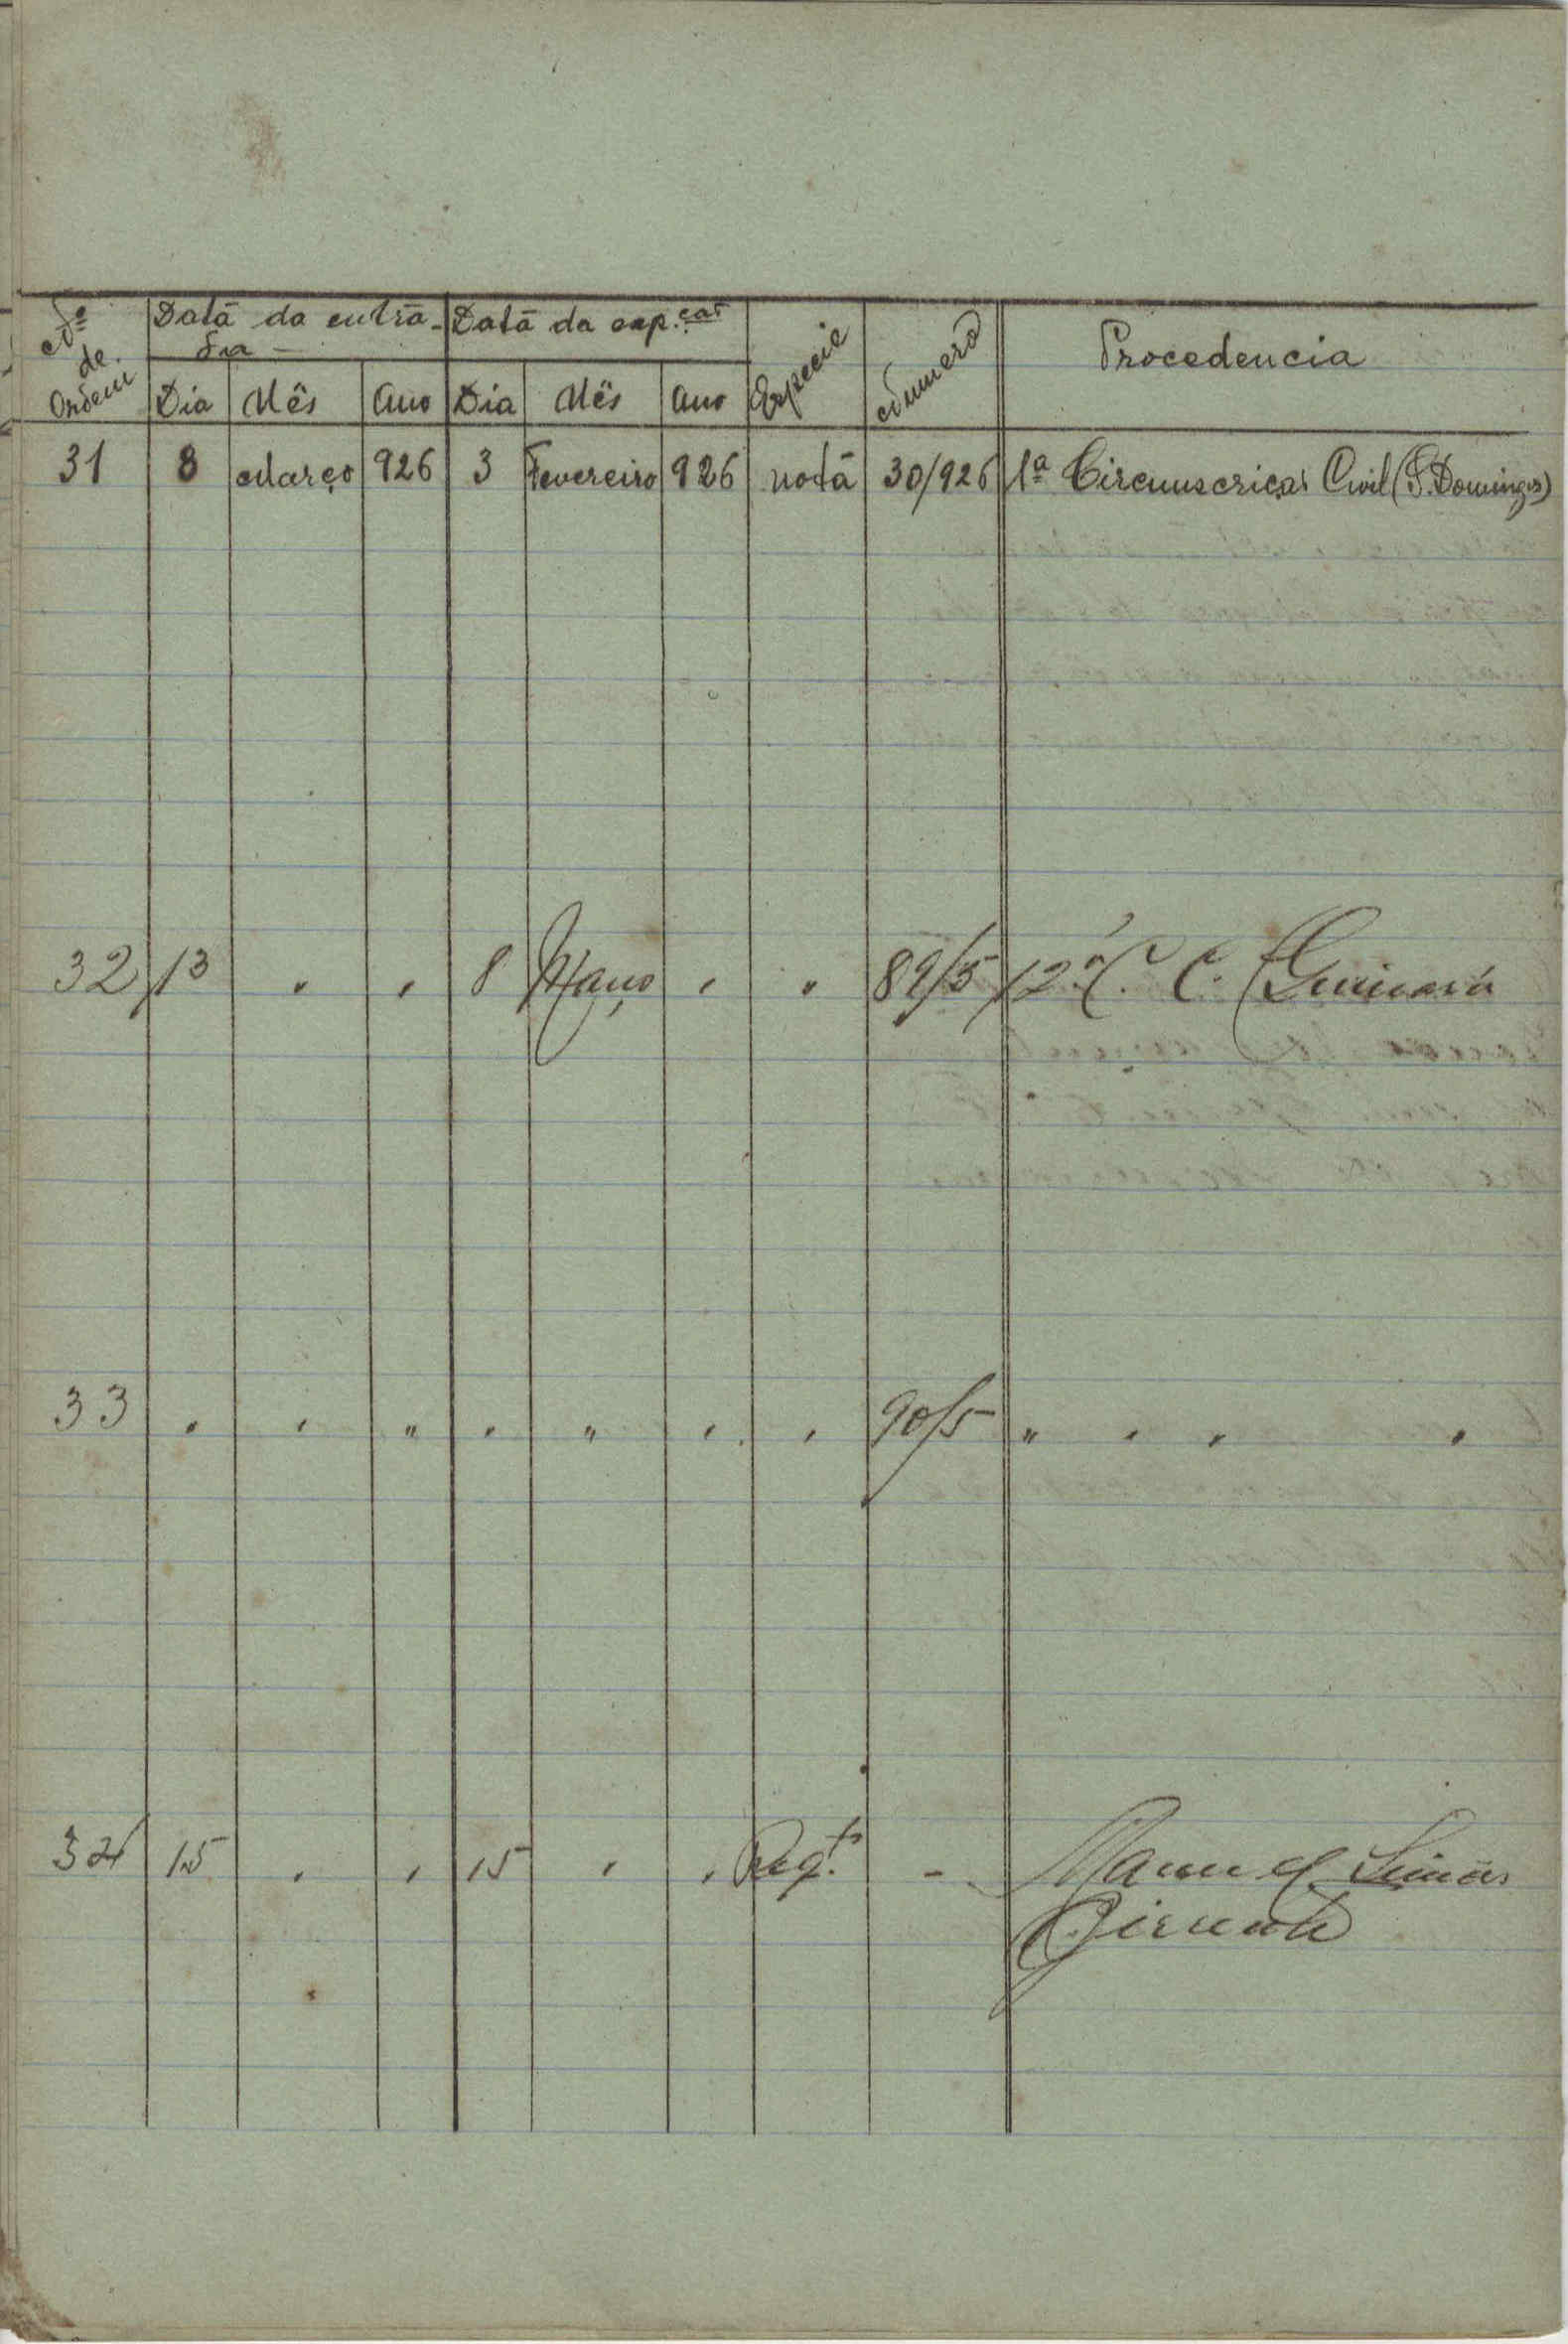 Nº de Ordem Datã da entrada Datã da exp.ção Especie Numero Procedencia
Dia Mês Ano Dia Mês Ano
31 8 Março 926 3 Fevereiro 926 notã 30/926 1ª Circunscrição Civil (S. Domingos)
32 13 " " 8 Março " " 89/5 2ª C. C.
33 " " " " " " " 90/5 " " " "
34 15 " " 15 " " Reqtº - Manuel Simões